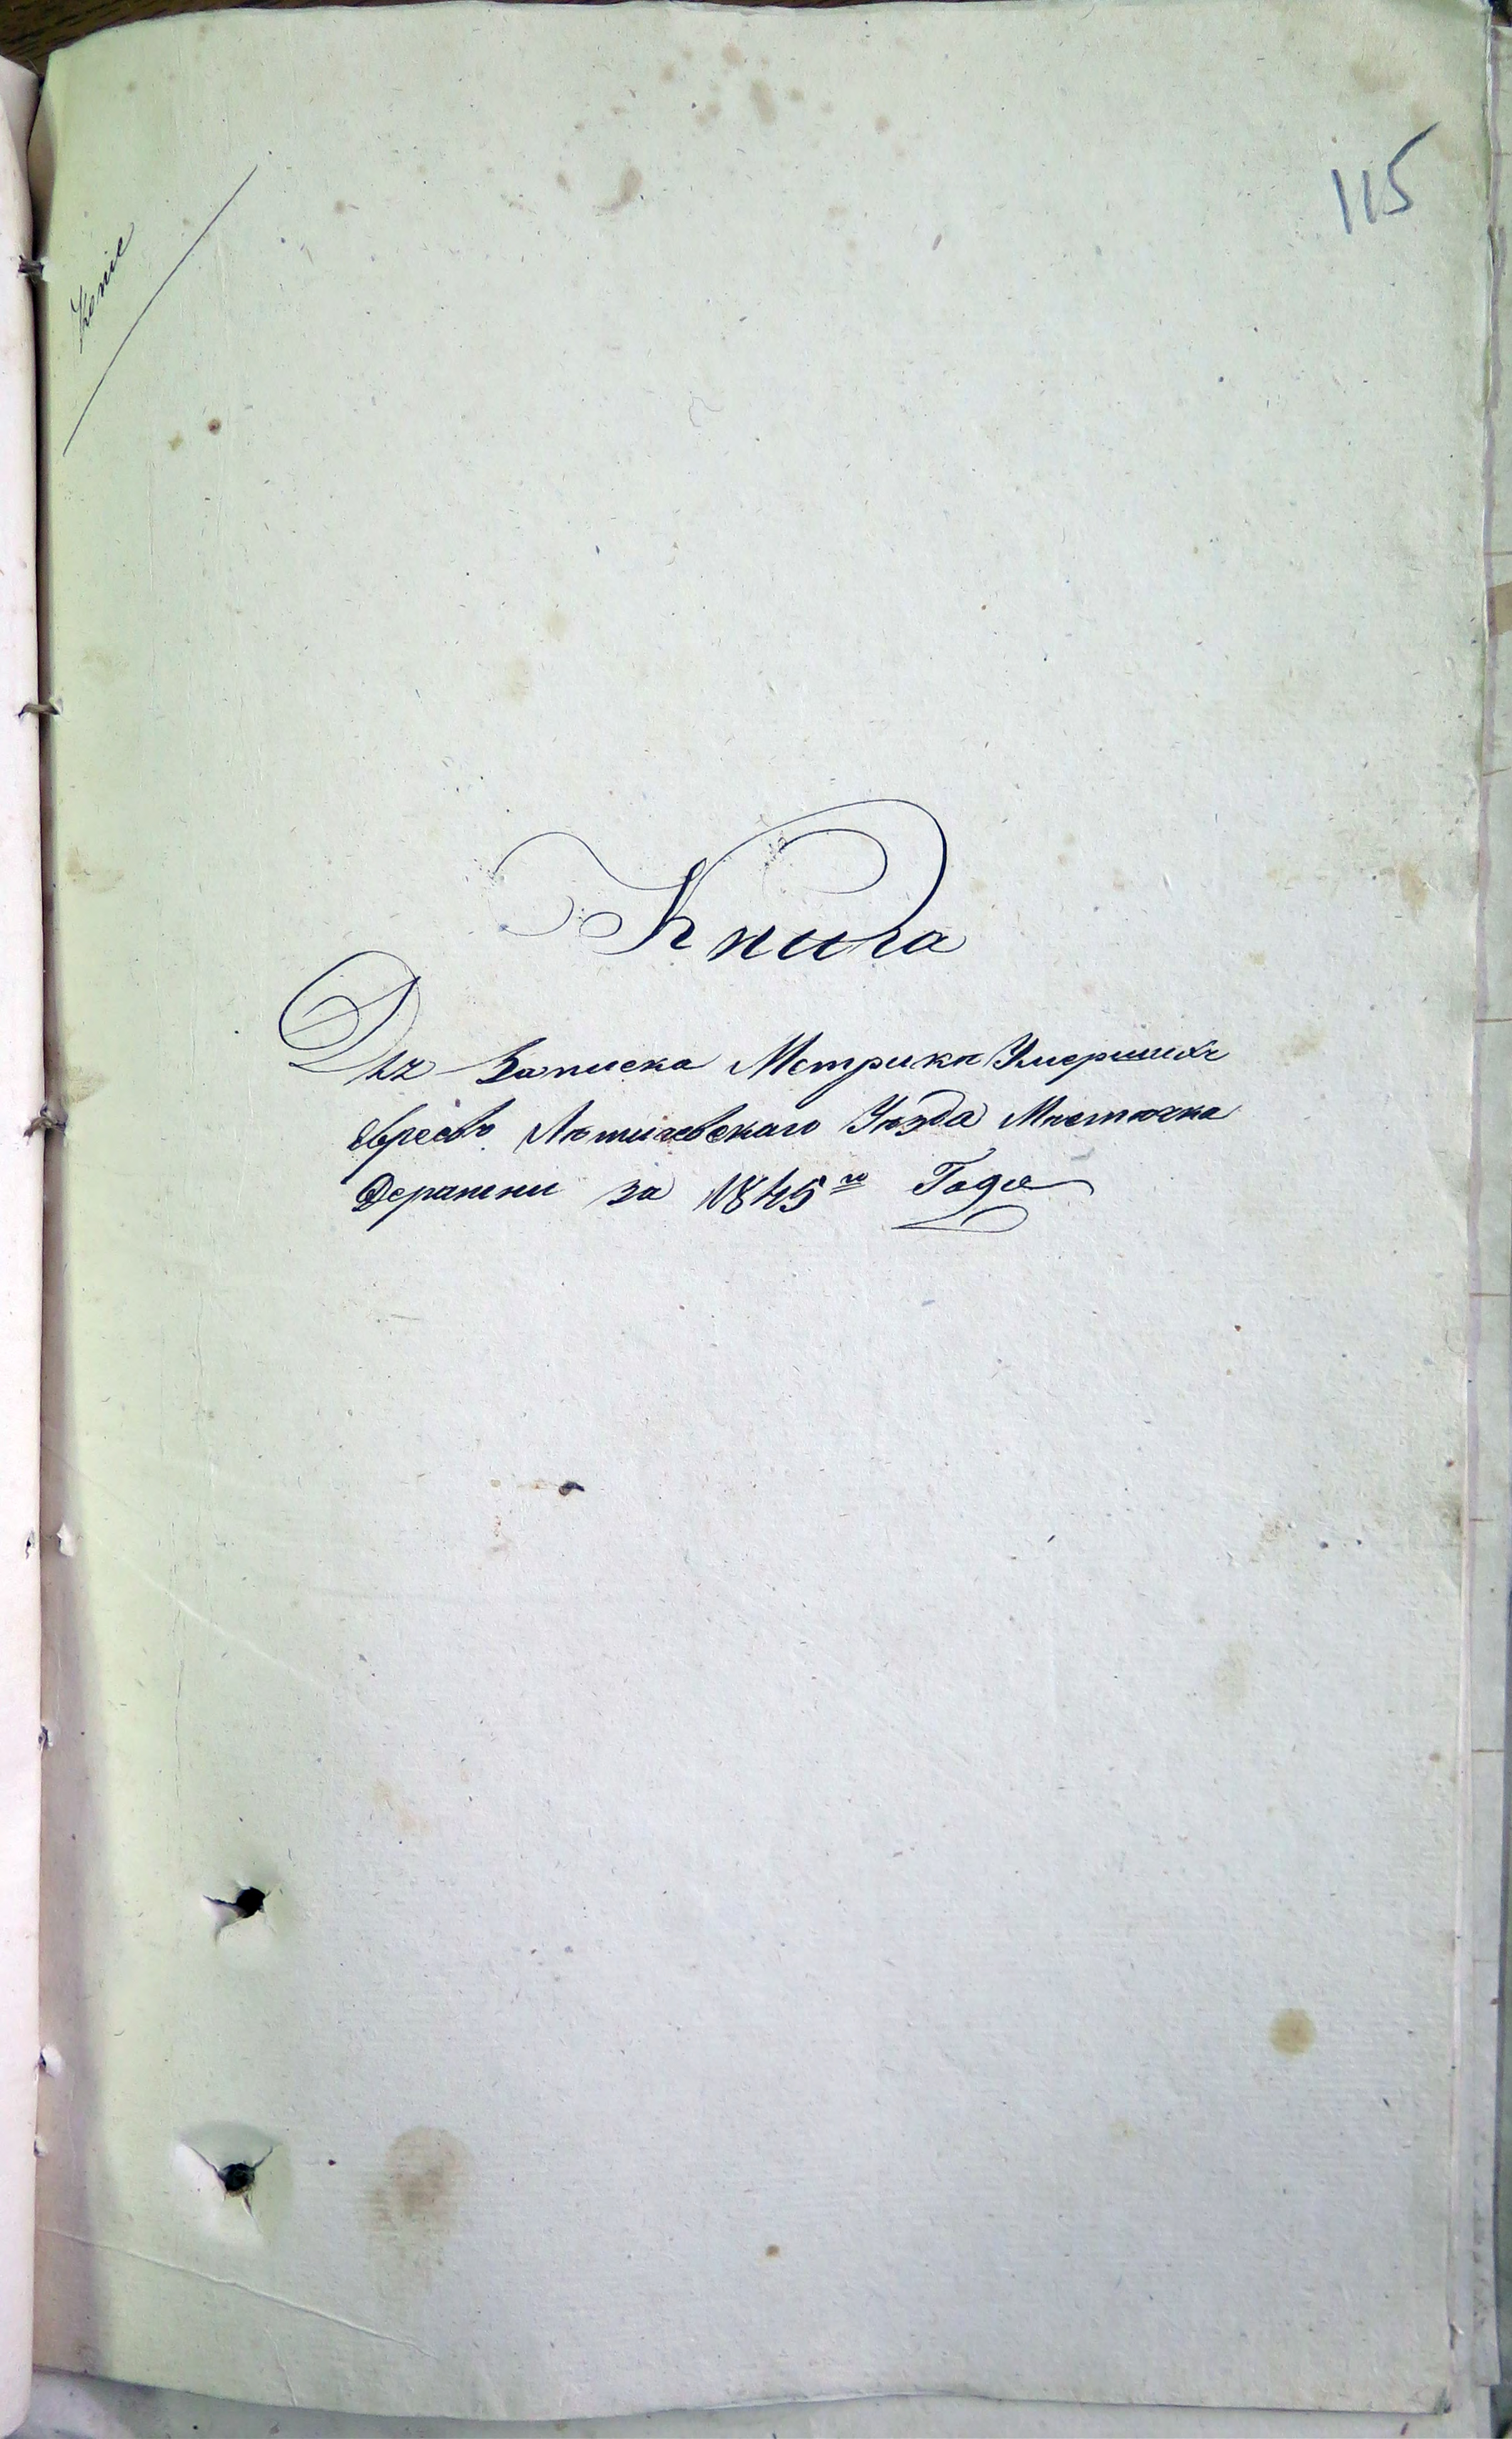 115
Книга
Для Записка Метрики Умершихъ
Евреевъ Летичевскаго Уезда Местечка
Деражни за 1845го Года